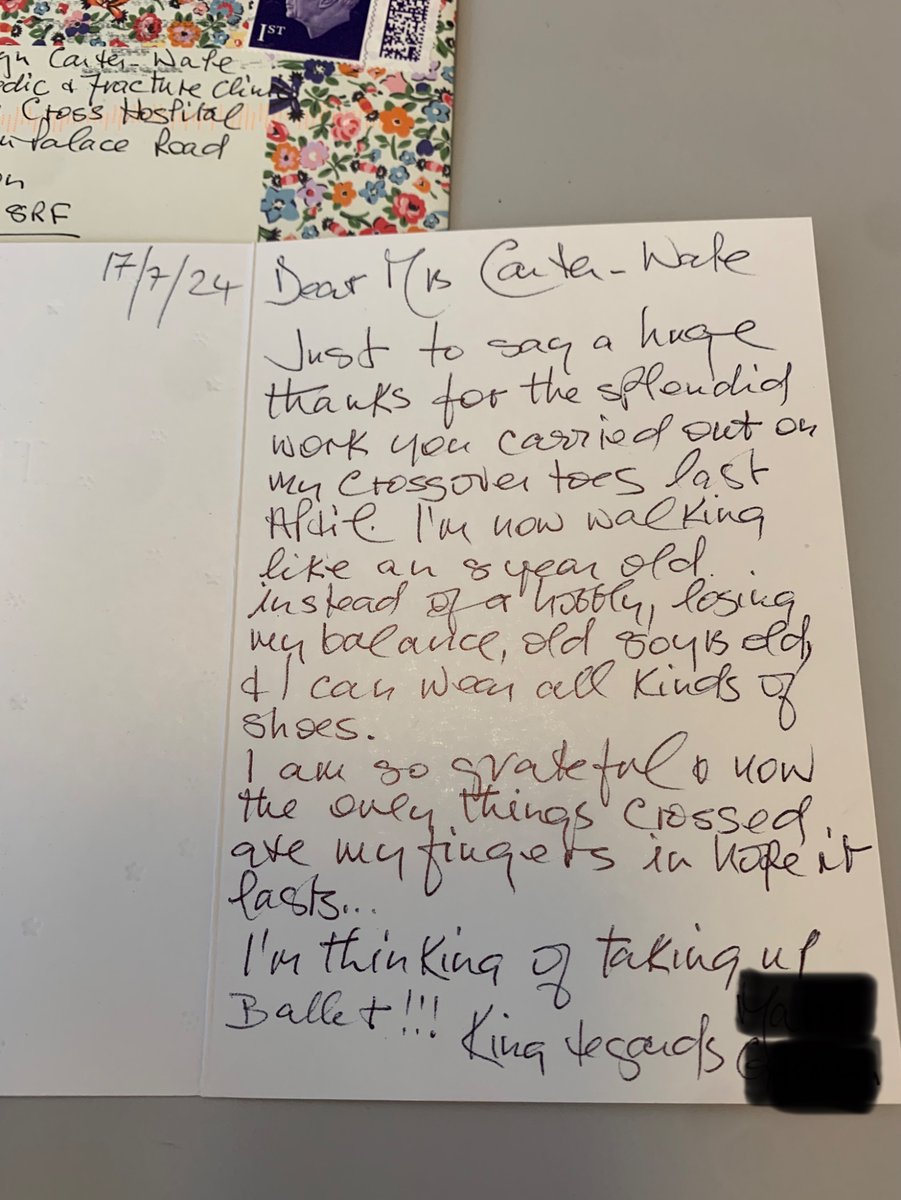 1ST
gn Carter-Wate
edic & Fracture Clinic
Cross Hospital
Palace Road
on
8RF
17/7/24
Dear Mrs Carter-Wate
Just to say a huge
thanks for the splendid
work you carried out on
my crossover toes last
April. I'm now walking
like an 8 year old
instead of a hobbly, losing
my balance, old 80yrs old,
& I can wear all kinds of
shoes.
I am so grateful & now
the only things crossed
are my fingers in hope it
lasts...
I'm thinking of taking up
Ballet!!!
Kind regards